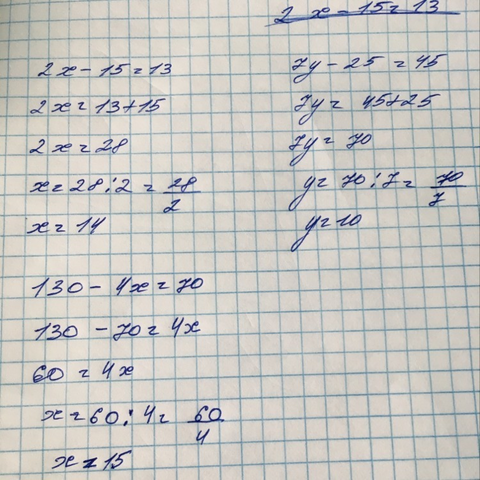 2x-15=13
2x-15=13
2x=13+15
2x=28
x=28:2=28/2
x=14
7y-25=45
7y=45+25
7y=70
y=70:7=70/7
y=10
130-4x=70
130-70=4x
60=4x
x=60:4=60/4
x=15